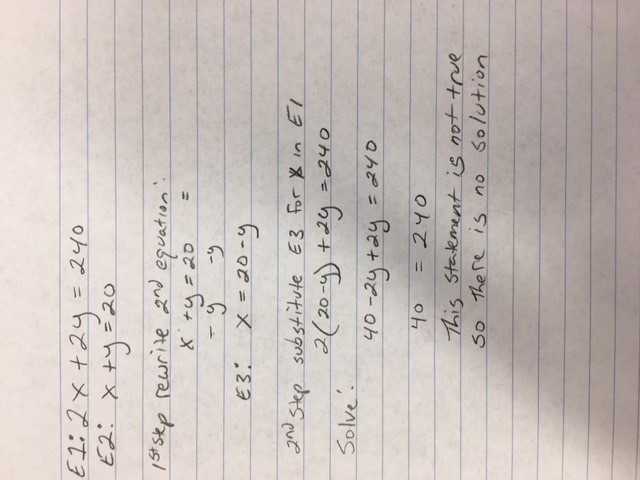 E1: 2x + 2y = 240
E2: x + y = 20
1st step rewrite 2nd equation:
x + y = 20 =
- y -y
E3: x = 20 - y
2nd step substitute E3 for x in E1
2(20-y) + 2y = 240
Solve:
40 - 2y + 2y = 240
40 = 240
This statement is not true
so there is no solution